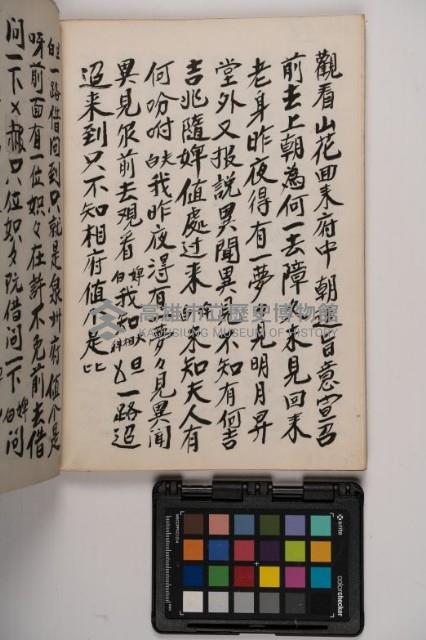 觀看山花回來府中朝 旨意宣召
前去上朝為何一去障久未見回來
老身昨夜得有一夢 見明月昇
堂外又报説異聞異見不知有何吉
吉兆隨婢值處过来 白未知夫人有
何吩咐 白夫我昨夜得有一夢々見異聞
異見你前去观看 白婢我知 旦
迢来到只不知相府值 不是比
白生一路借问到只就是泉州府值个是
呀前面有一位娘々在許不免前去借
問一下 只位娘々阮借問一下 白婢問
高雄市立歷史博物館
KAOHSIUNG MUSEUM OF HISTORY
x-rite
colorchecker